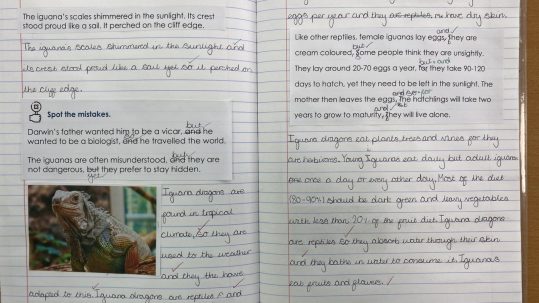 The iguana's scales shimmered in the sunlight. Its crest
stood proud like a sail. It perched on the cliff edge.
The iguanas scales shimmered in the sunlight and
its crest stood proud like a sail yet so it perched on
the cliff edge.
Spot the mistakes.
but
Darwin's father wanted him to be a vicar, and he
wanted to be a biologist, and he travelled the world.
but
The iguanas are often misunderstood, and they are
not dangerous, but they prefer to stay hidden.
yet
Iguana dragons are
found in tropical
climate, so they are
used to the weather
and they the have
adapted to this. Iguana dragons are reptiles and
eggs per year and they are reptiles, have dry skin.
Like other reptiles, female iguanas lay eggs, they are
but
cream coloured, some people think they are unsightly.
but and
They lay around 20-70 eggs a year, for they take 90-120
days to hatch, yet they need to be left in the sunlight. The
and for
mother then leaves the eggs. The hatchlings will take two
and but
years to grow to maturity, they will live alone.
Iguana dragons eat plants trees and vines for they
are herbivores. Young Iguanas eat daily but adult iguana
one once a day or every other day. Most of the diet
(80-90%) should be dark green and leavy vegetables
with less than 20% of the fruit diet. Iguana dragons
are reptiles so they absorb water through their skin
and they bathe in water to consume it. Iguanas
eat fruits and flowers.